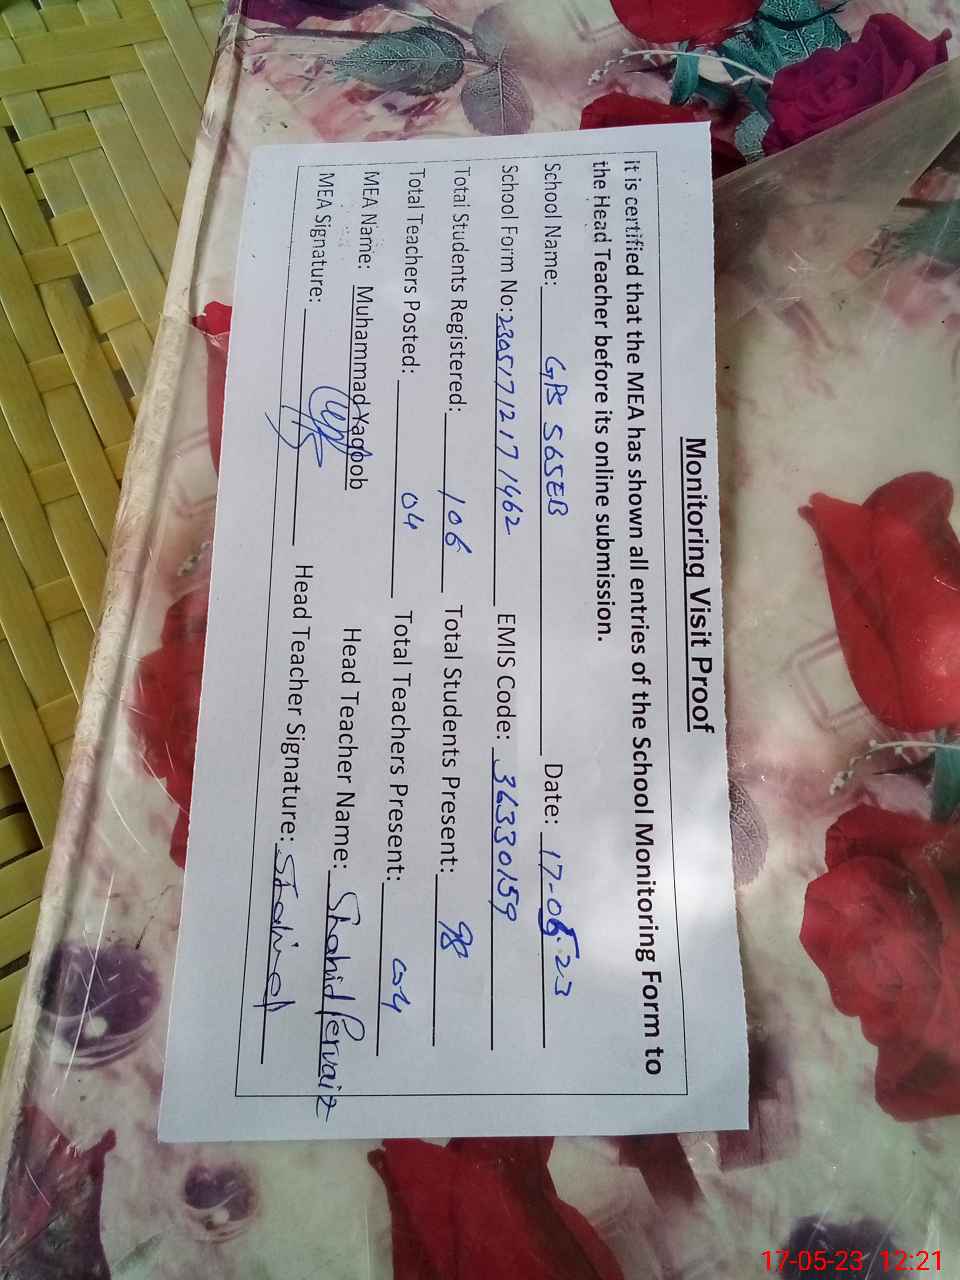 Monitoring Visit Proof
it is certified that the MEA has shown all entries of the School Monitoring Form to
the Head Teacher before its online submission.
School Name: GPS 565EB Date: 17-05-23
School Form No: 2305171217 1462 EMIS Code: 36330159
Total Students Registered: 106 Total Students Present: 98
Total Teachers Posted: 04 Total Teachers Present: 04
MEA Name: Muhammad Yaqoob Head Teacher Name: Shahid Pervaiz
MEA Signature: Head Teacher Signature: Shahid
17-05-23 12:21